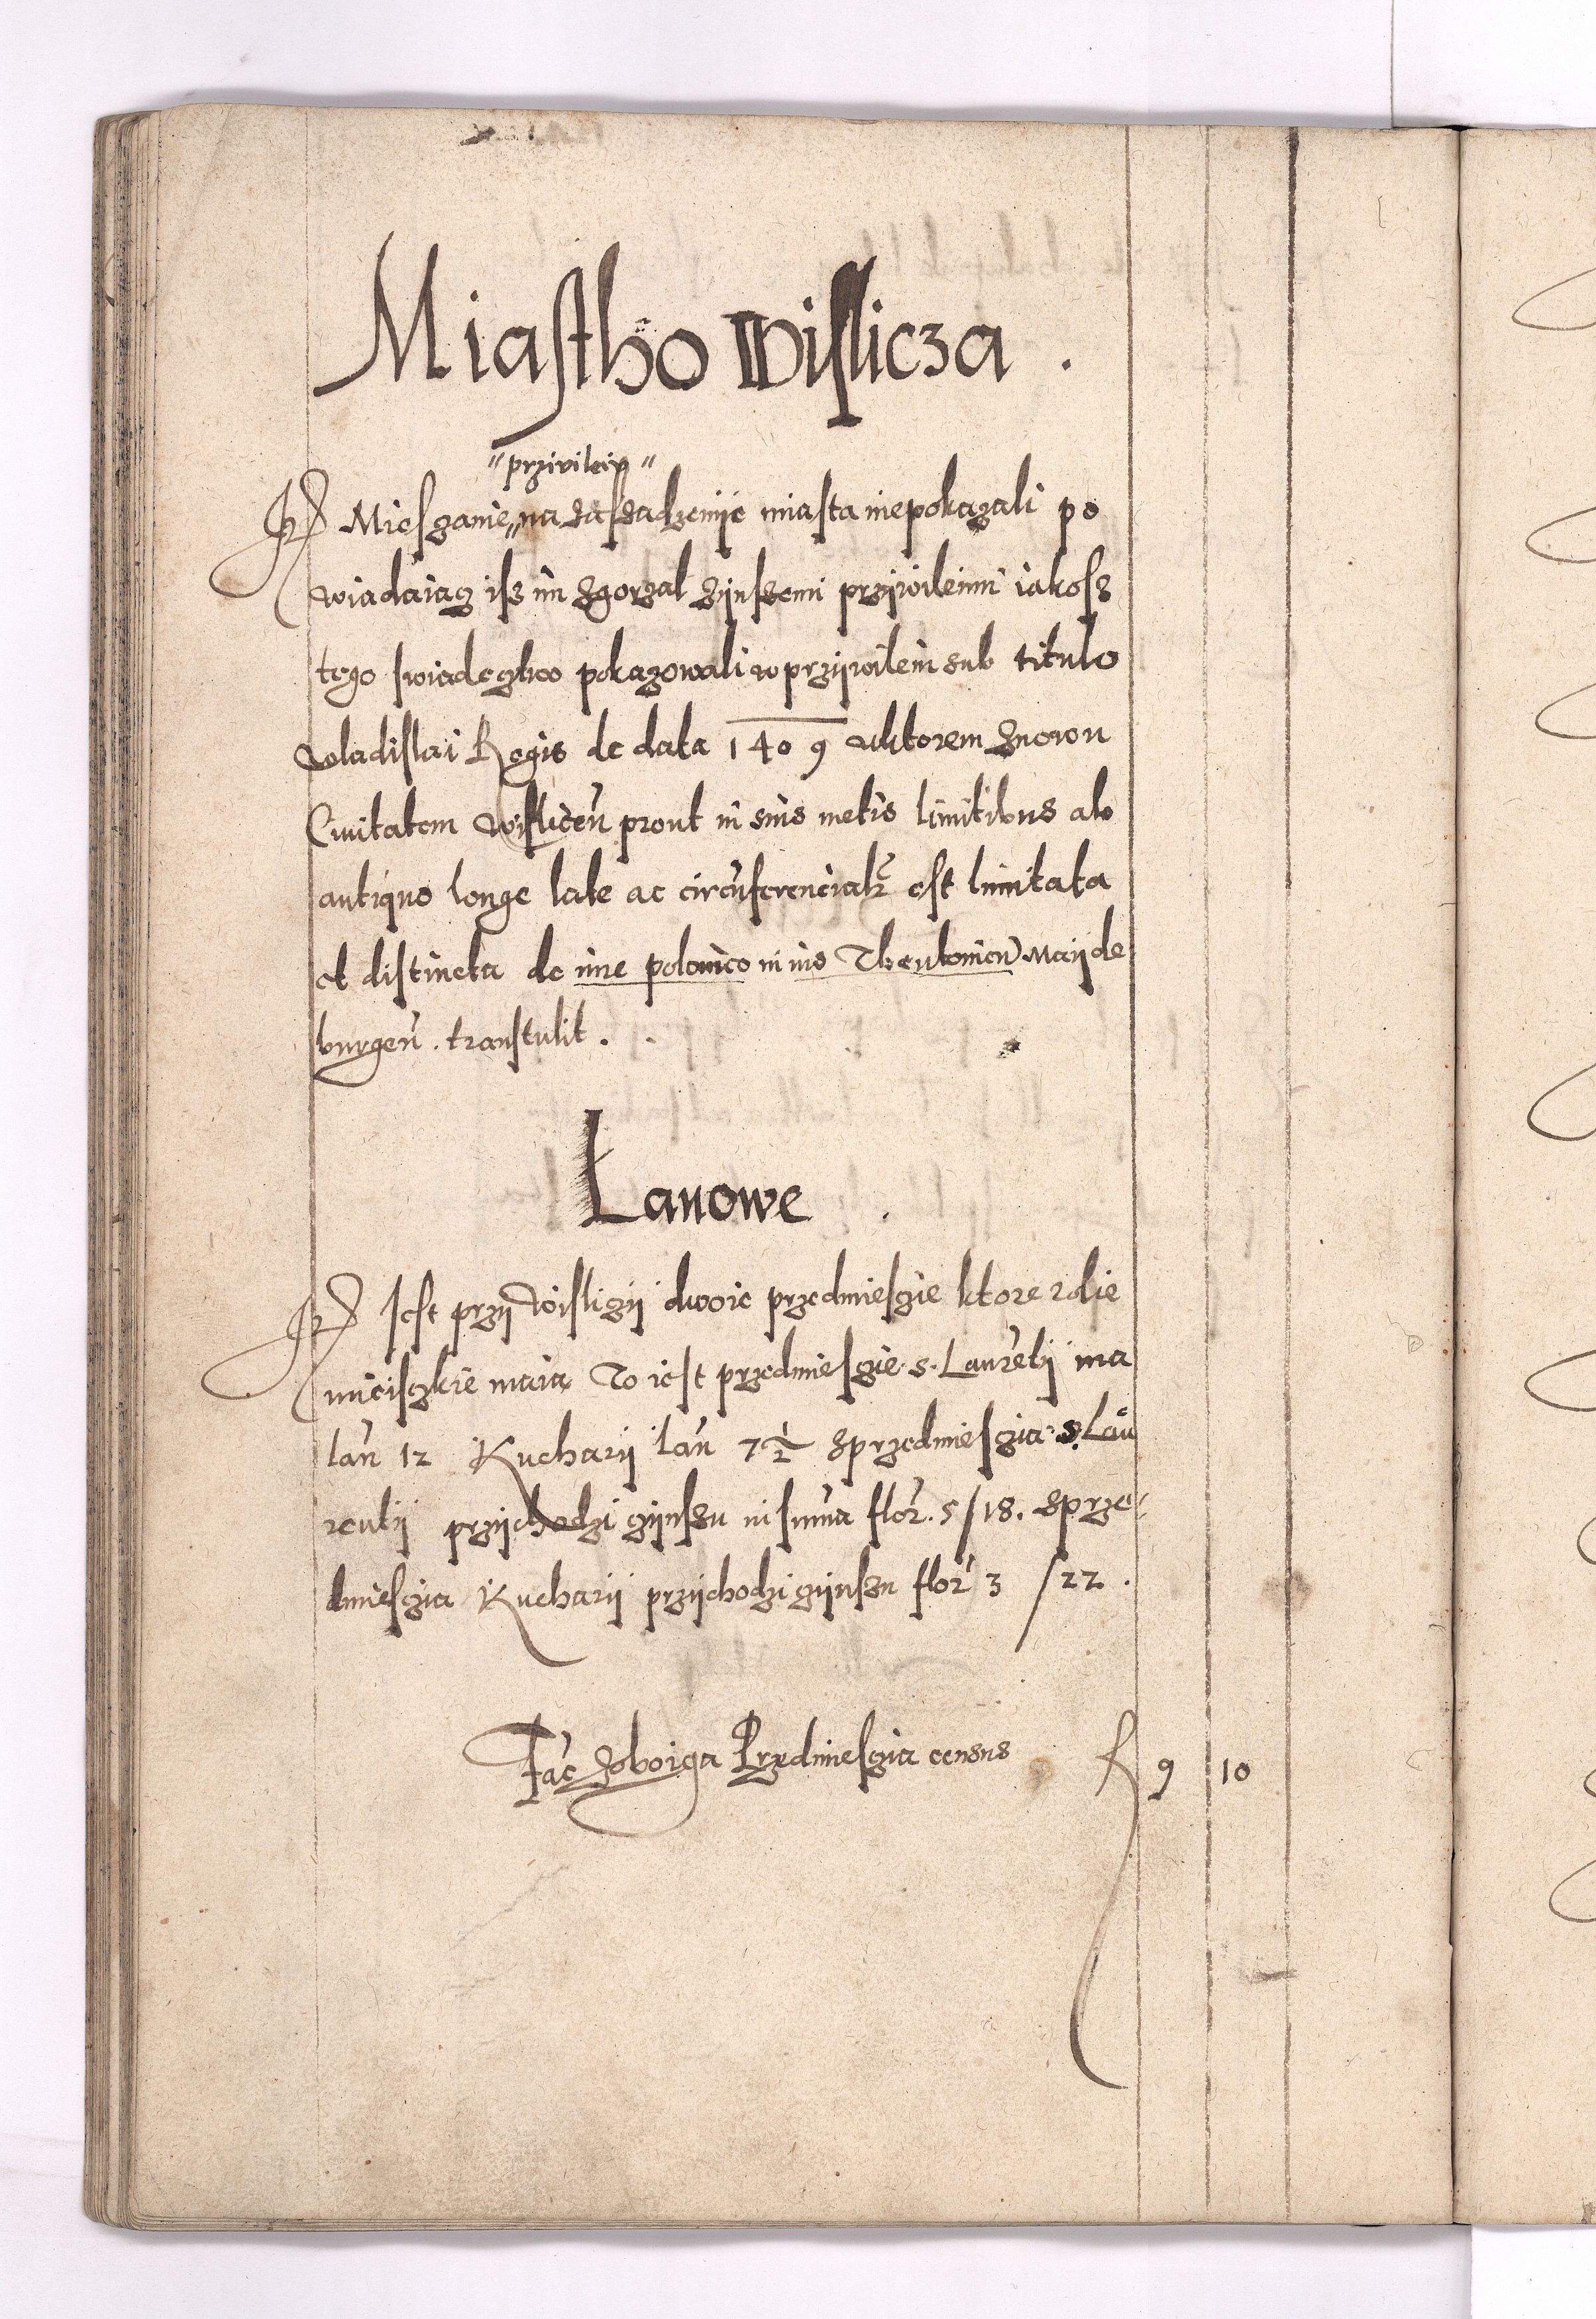 Miastho Wislicza .
"przivileiu"
Miesczanie „ na zassadzeniie miasta niepokazali po
wiadaiącz isz im zgorzal zijnszemi przijwileimi iakosz
tego swiadecztwo pokazowali w przijwileiu sub titulo
Wladislai Regis de data 1409 wktorem znowu
Civitatem Wislicen̄ prout in suis metis limitibus ab
antiquo longe late ac circūferencialr̄ est limitata
et distincta de iure polonico in ius Theutonicū Maijde
burgen̄ . transtulit .
Łanowe .
Jest przij Wisliczij dwoie przedmiesczie ktore rolie
mieisczkie maia To iest przedmiesczie s. Laurētij ma
lan̄ 12 Kucharij lan̄ 7½ sprzedmiesczia s. Lau
rentij przijchodzi czijnszu in sum̄a flor̄. 5/18. sprze
dmiesczia Kucharij przijchodzi czijnszu flor̄ 3 /22 .
Fac̄ zoboiga Przedmiesczia census f 9 10